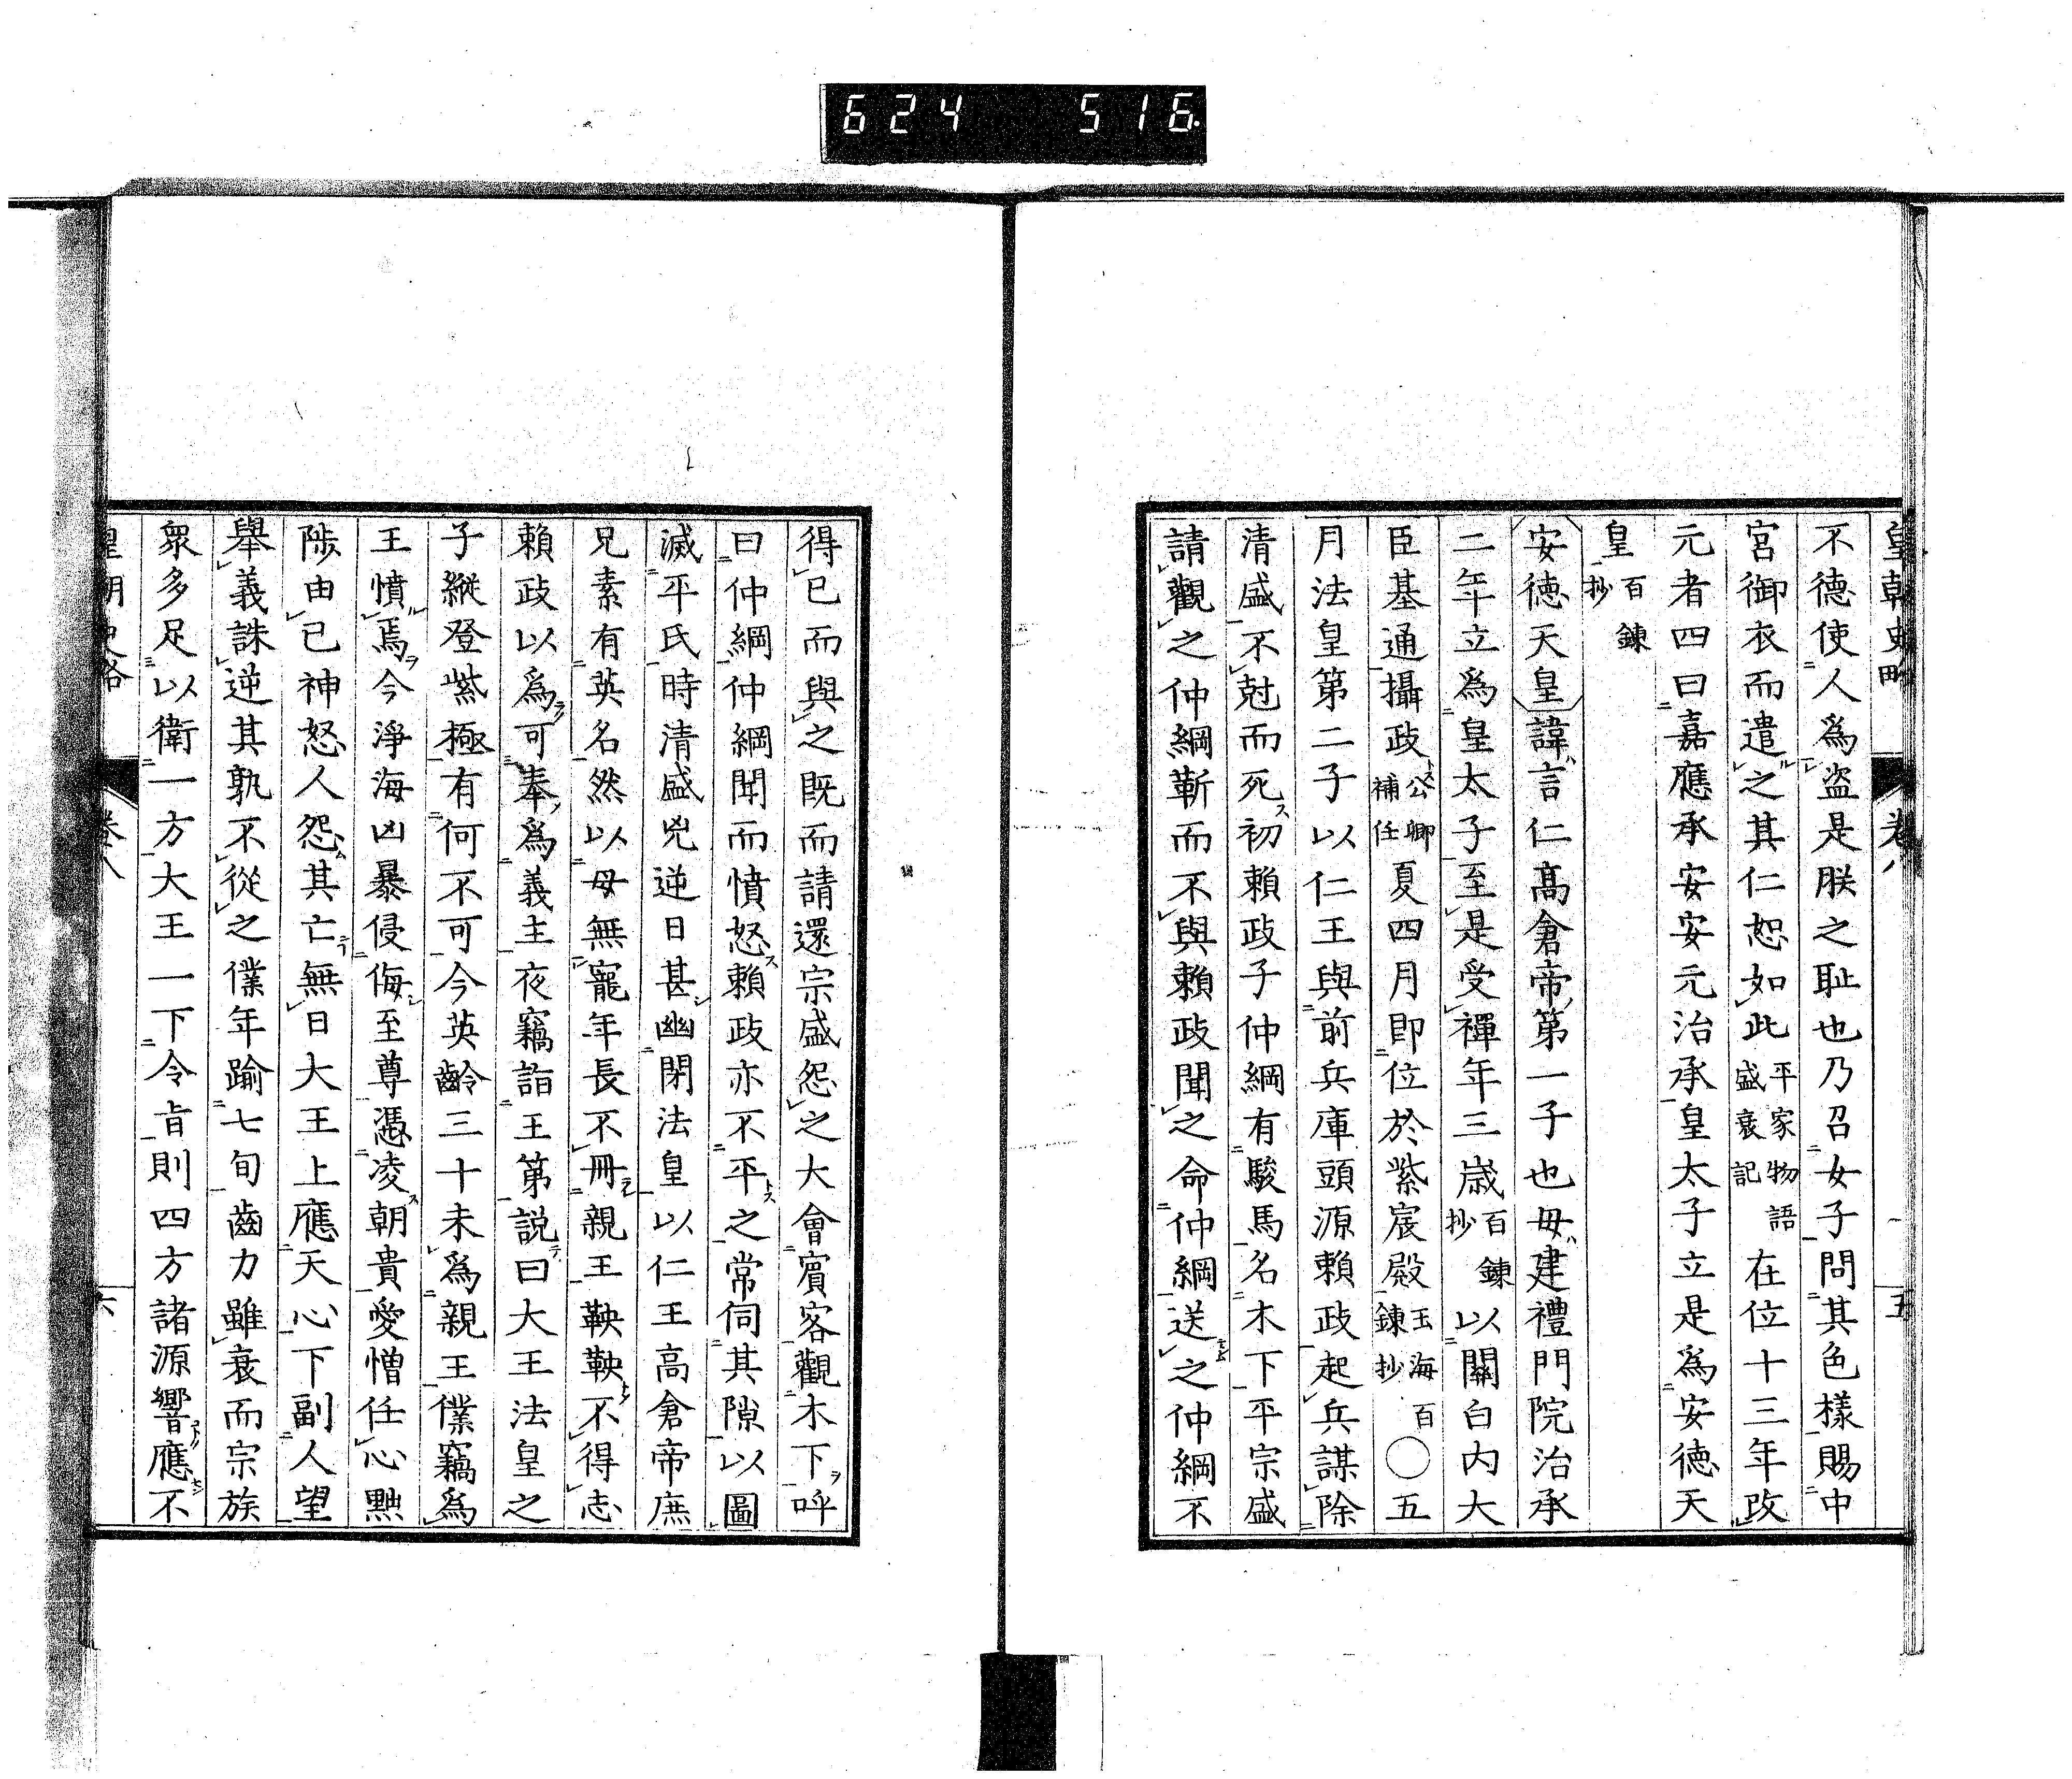 624 516
皇朝史略 卷八 五
不德使人爲盗是朕之恥也乃召女子問其色樣賜中
宮御衣而遣之其仁恕如此平家物語盛衰記在位十三年改
元者四曰嘉應承安安元治承皇太子立是爲安德天
皇百鍊抄
安德天皇諱言仁高倉帝第一子也母建禮門院治承
二年立爲皇太子至是受禪年三歳百鍊抄以關白内大
臣基通攝政公卿補任夏四月即位於紫宸殿玉海百鍊抄〇五
月法皇第二子以仁王與前兵庫頭源頼政起兵謀除
清盛不克而死初頼政子仲綱有駿馬名木下平宗盛
請觀之仲綱靳而不與頼政聞之命仲綱送之仲綱不
得已而與之既而請還宗盛怨之大會賓客觀木下呼
曰仲綱仲綱聞而憤怒頼政亦不平之常伺其隙以圖
滅平氏時清盛兇逆日甚幽閉法皇以仁王高倉帝庶
兄素有英名然以母無寵年長不冊親王鞅鞅不得志
頼政以爲可奉爲義主夜竊詣王第説曰大王法皇之
子縱登紫極有何不可今英齡三十未爲親王僕竊爲
王憤焉今淨海凶暴侵侮至尊憑凌朝貴愛憎任心黜
陟由己神怒人怨其亡無日大王上應天心下副人望
舉義誅逆其孰不從之僕年踰七旬齒力雖衰而宗族
衆多足以衛一方大王一下令旨則四方諸源響應不
皇朝史略 卷八 六